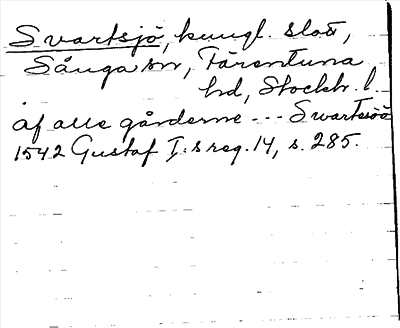 Svartsjö, kungl. slott,
Sånga sn, Färentuna
hd, Stockh. l.
af alle gårderne --- Swartsiöö
1542 Gustaf I:s reg. 14, s. 285.